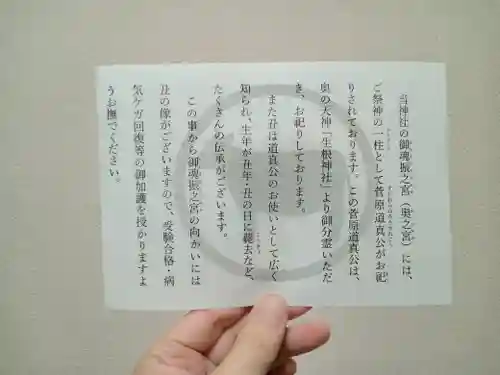 当神社の御魂振之宮（奥之宮）には、
ご祭神の一柱として菅原道真公がお祀
りされております。この菅原道真公は、
奥の天神「生根神社」より御分霊いただ
き、お祀りしております。
また丑は道真公のお使いとして広く
知られ、生年が丑年・丑の日に薨去など、
たくさんの伝承がございます。
この事から御魂振之宮の向かいには
丑の像がございますので、受験合格・病
気ケガ回復等の御加護を授かりますよ
うお撫でください。